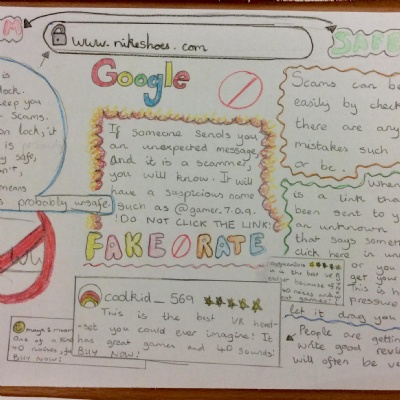 M
www.nikeshoes.com
SAFE
Google
is
lock.
keep you
scams.
on lock, it
is
safe,
means
is probably unsafe.
If someone sends you
an unexpected message,
And it is a scammer,
you will know. It will
have a suspicious name
such as @gamer.7.0.9.
!DO NOT CLICK THE LINK!
Scams can be
easily by check
there are any
mistakes such
or bc.
When
is a link tha
been sent to y
an unknown
that says somet
click here
FAKE RATE
coolkid_569
This is the best VR head
-set you could ever imagine! It
has great games and 40 sounds!
BUY NOW!
BUY NOW!
or you
get you
This is h
pressure
let it drag you
People are gettin
write good revi
will often be ve